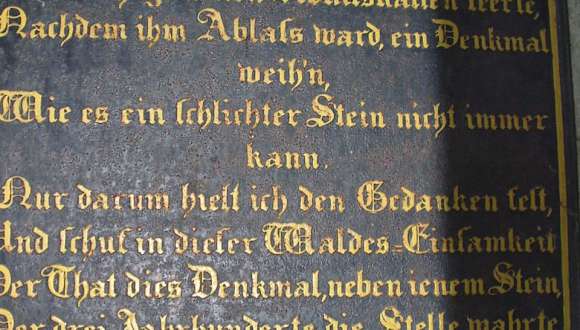 leerte,
Nachdem ihm Ablaſs ward, ein Denkmal
weih'n,
Wie es ein ſchlichter Stein nicht immer
kann.
Nur darum hielt ich den Gedanken feſt,
Und ſchuf in dieſer Waldes=Einſamkeit
Der That dies Denkmal, neben jenem Stein,
Der drei Jahrhunderte die Stelle wahrte